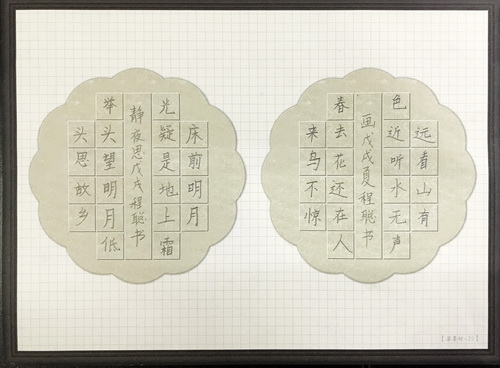 远看山有
色近听水无声
画戊戌夏程聪书
春去花还在人
来鸟不惊
床前明月
光疑是地上霜
静夜思戊戌程聪书
举头望明月低
头思故乡